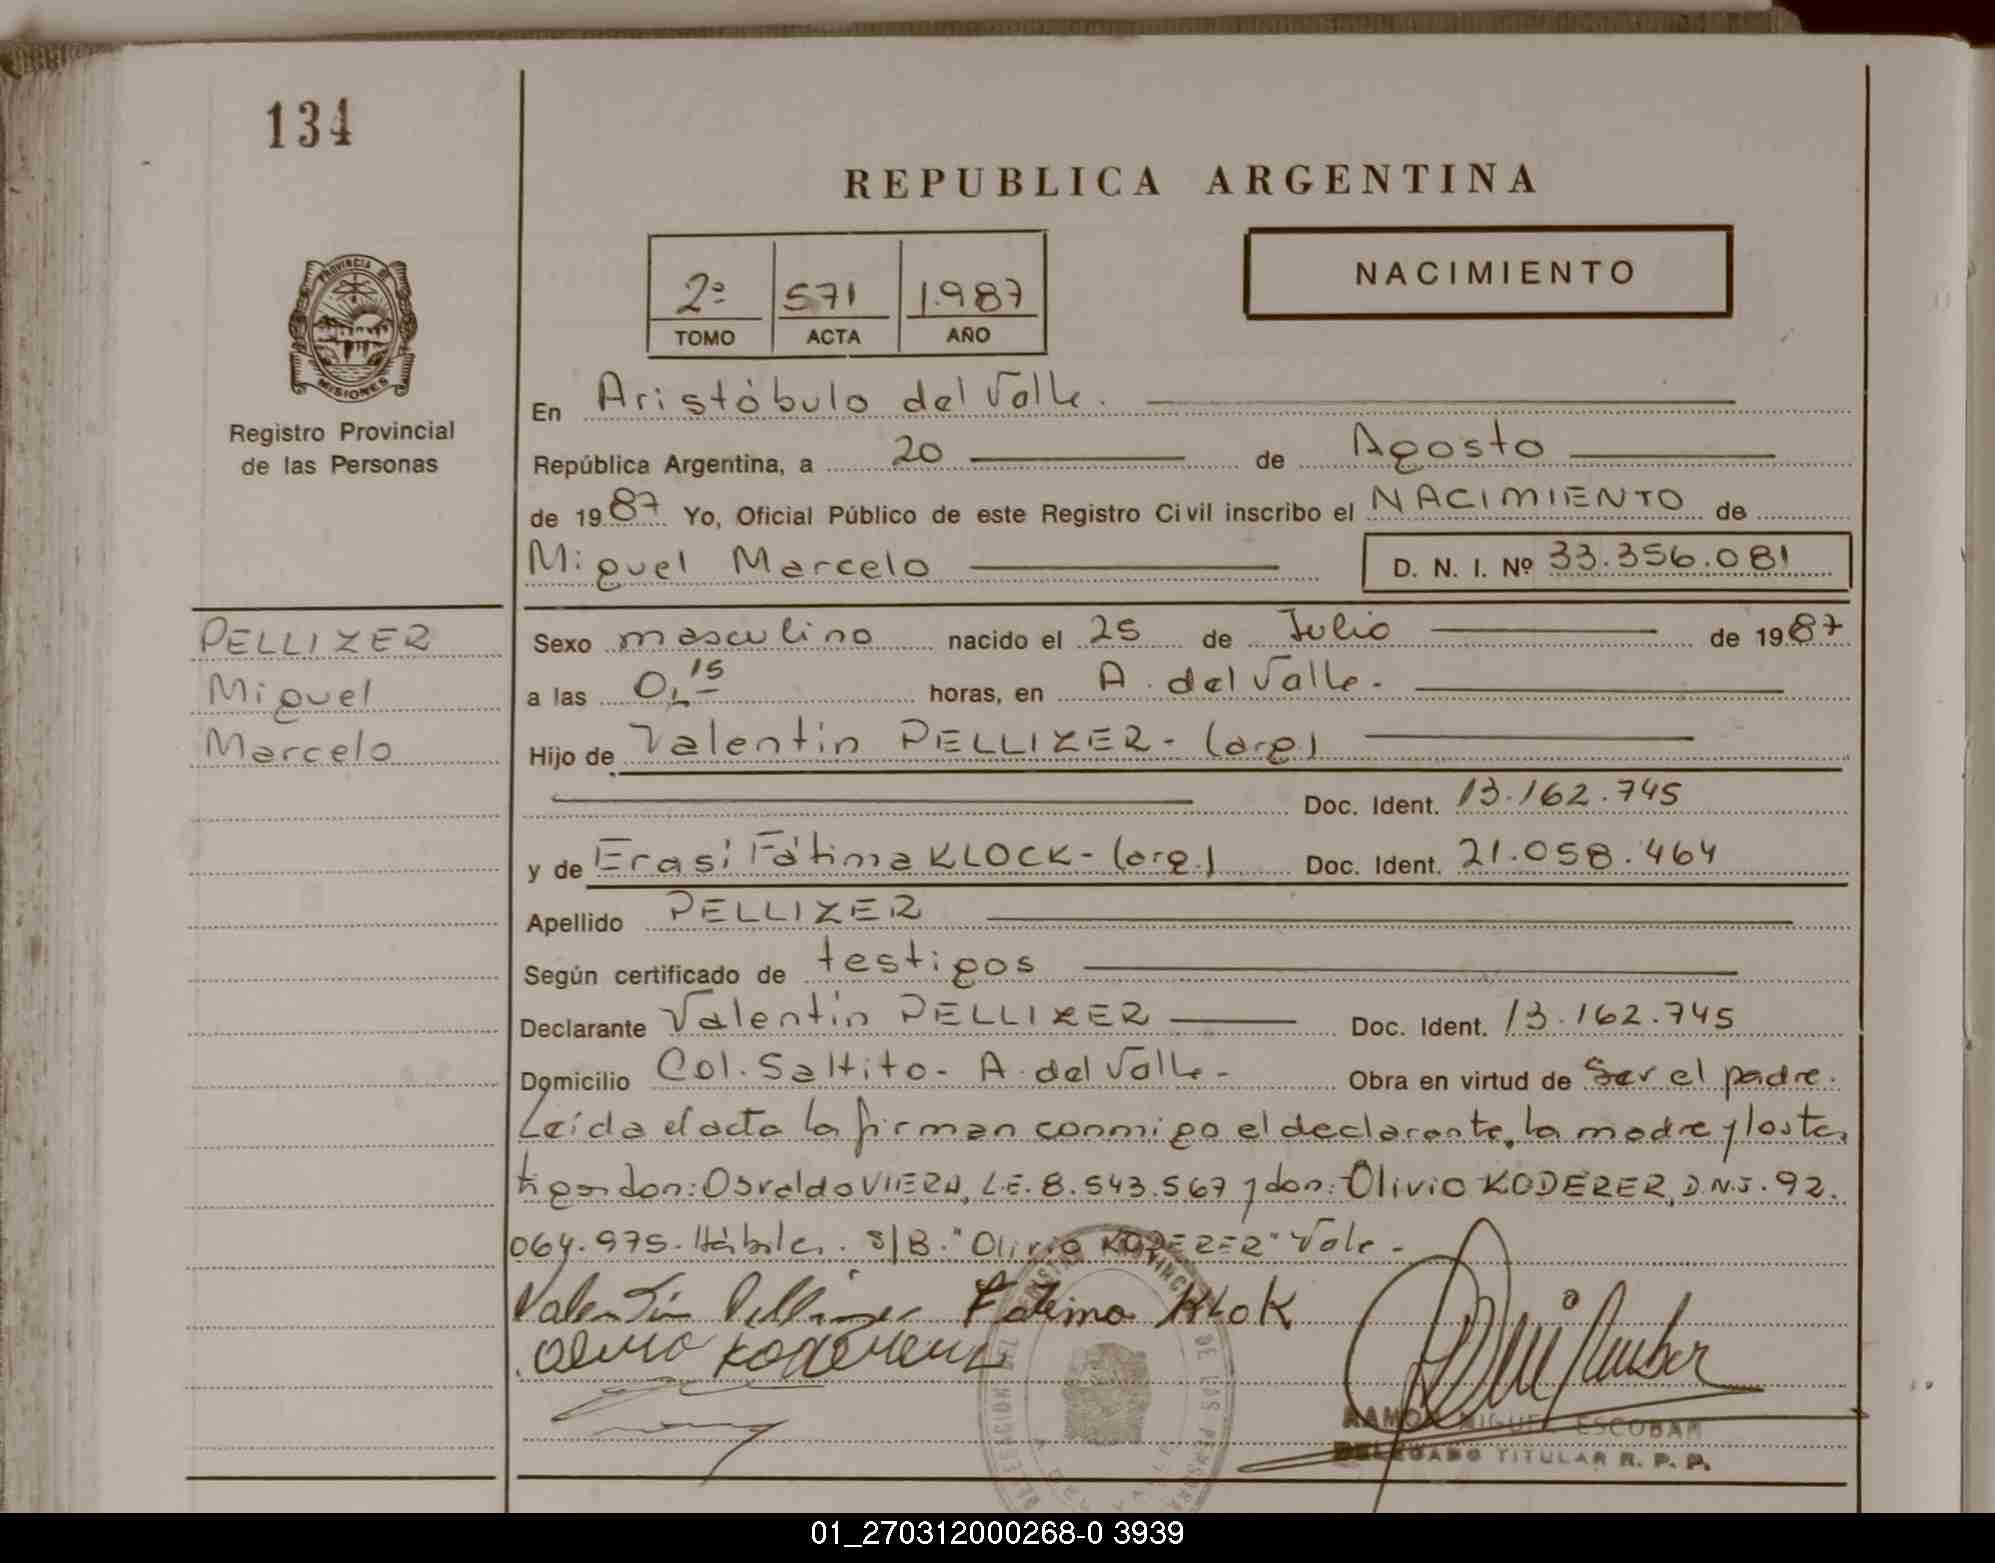 134
REPUBLICA ARGENTINA
2º 571 1.987
TOMO ACTA AÑO
NACIMIENTO
PROVINCIA DE
MISIONES
Registro Provincial
de las Personas
En Aristóbulo del Valle.
República Argentina, a 20 de Agosto
de 1987 Yo, Oficial Público de este Registro Civil inscribo el NACIMIENTO de
Miguel Marcelo D. N. I. Nº 33.356.081
PELLIZER
Miguel
Marcelo
Sexo masculino nacido el 25 de Julio de 1987
a las 0,15 horas, en A. del Valle.
Hijo de Valentín PELLIZER- (arg)
Doc. Ident. 13.162.745
y de Erasi Fátima KLOCK- (arg.) Doc. Ident. 21.058.464
Apellido PELLIZER
Según certificado de testigos
Declarante Valentín PELLIZER Doc. Ident. 13.162.745
Domicilio Col. Saltito- A. del Valle- Obra en virtud de Ser el padre.
Leída el acta la firman conmigo el declarante, la madre y los tes
tigos don: Osvaldo VIERA, L.E. 8.543.567 y don: Olivio KODERER, D.N.I. 92.
064.975. Hábiles. s/B. "Olivio KODERER" Vale-
Valentín Pellizer Fatima KloK
RAMON MIGUEL ESCOBAR
DELEGADO TITULAR R. P. P.
01_270312000268-0 3939